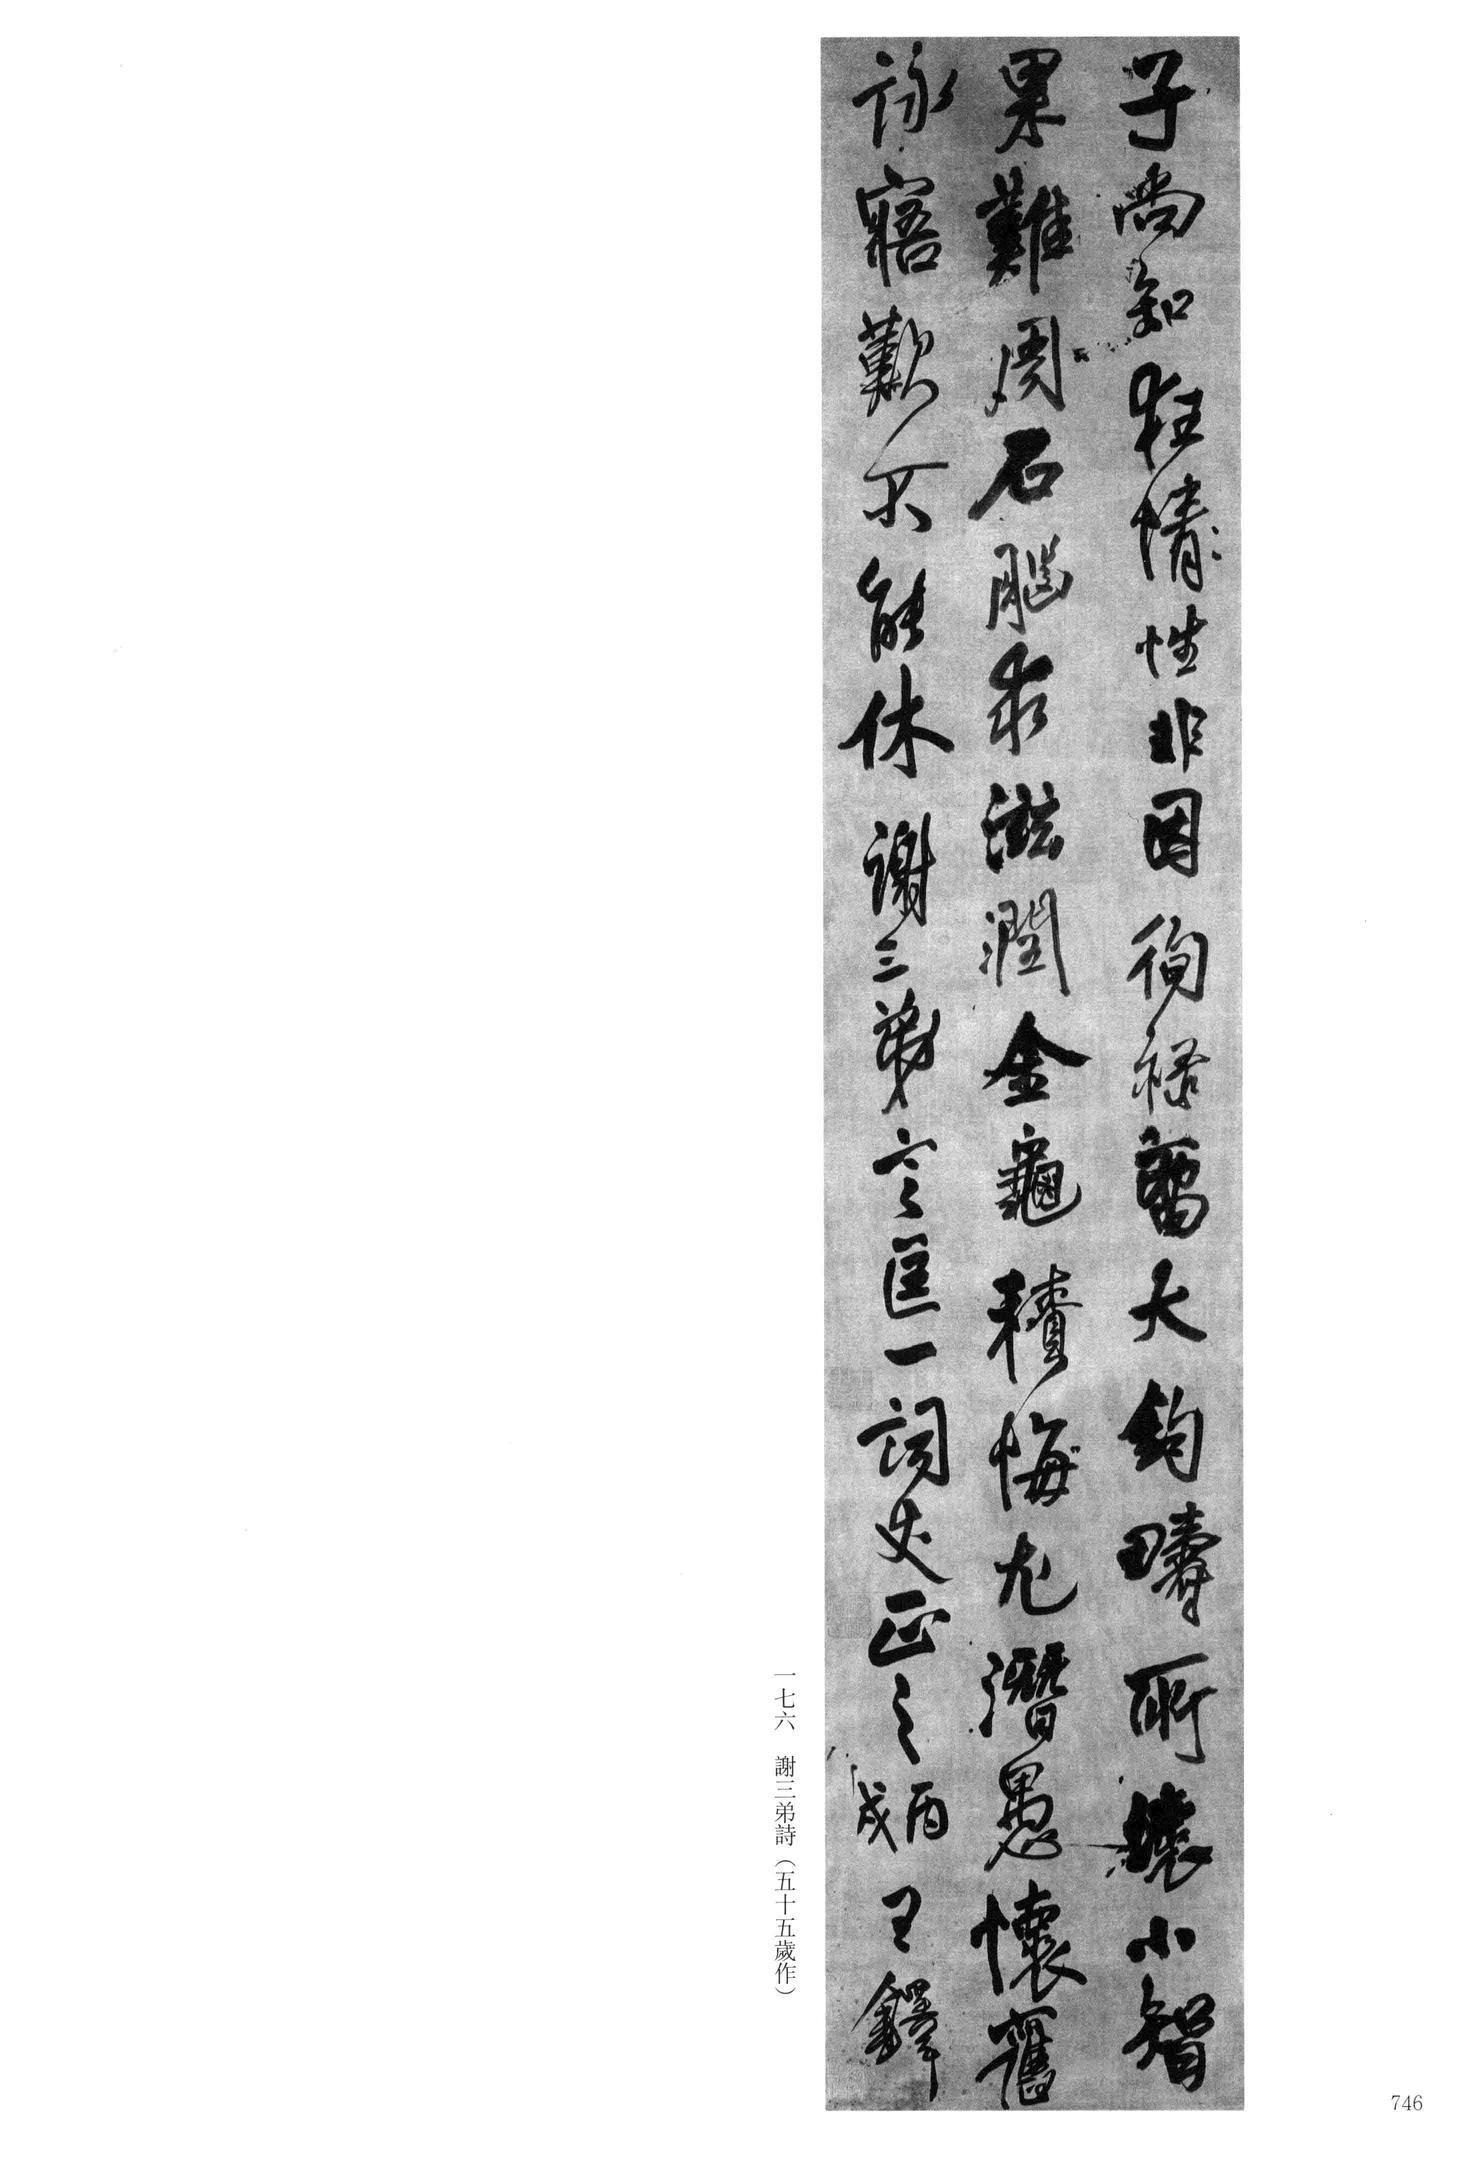 子尚知狂情性非因徇祿留大鈞疇所小智
果難周石腦求滋潤金龜積悔尤潛愚懷舊
詠寤歎不能休謝三弟言匡一詞丈正之丙戌王鐸
一七六　謝三弟詩（五十五歲作）
746